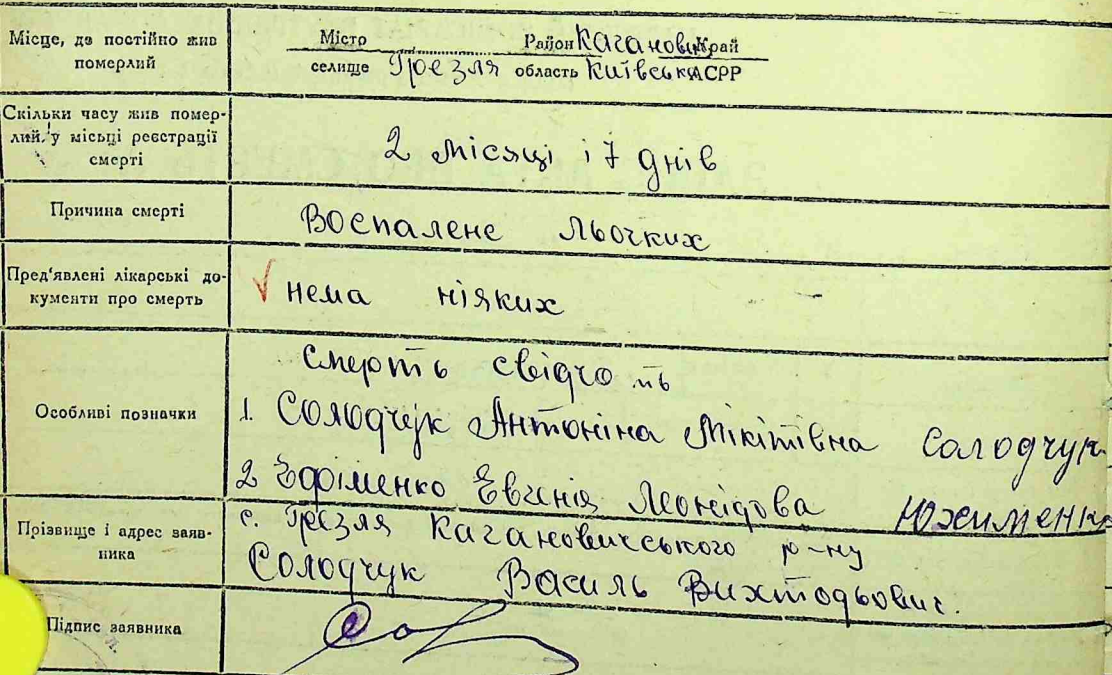 Місце, де постійно жив Місто Район Кагановичі Край
померлий селище Грезля область Київська АСРР
Скільки часу жив помер-
лий у місці реєстрації
смерті
2 місяці і 7 днів
Причина смерті Воспалене льочких
Пред'явлені лікарські до-
кументи про смерть
нема ніяких
Особливі позначки
Смерть свідчоть
1. Солодчук Антоніна Мікітівна Солодчук
2 Ефіменко Евгенія Леонідова
Прізвище і адрес заяв-
ника
с. Грезля Кагановичського р-ну
Солодчук Василь Вихтодьович.
Підпис заявника